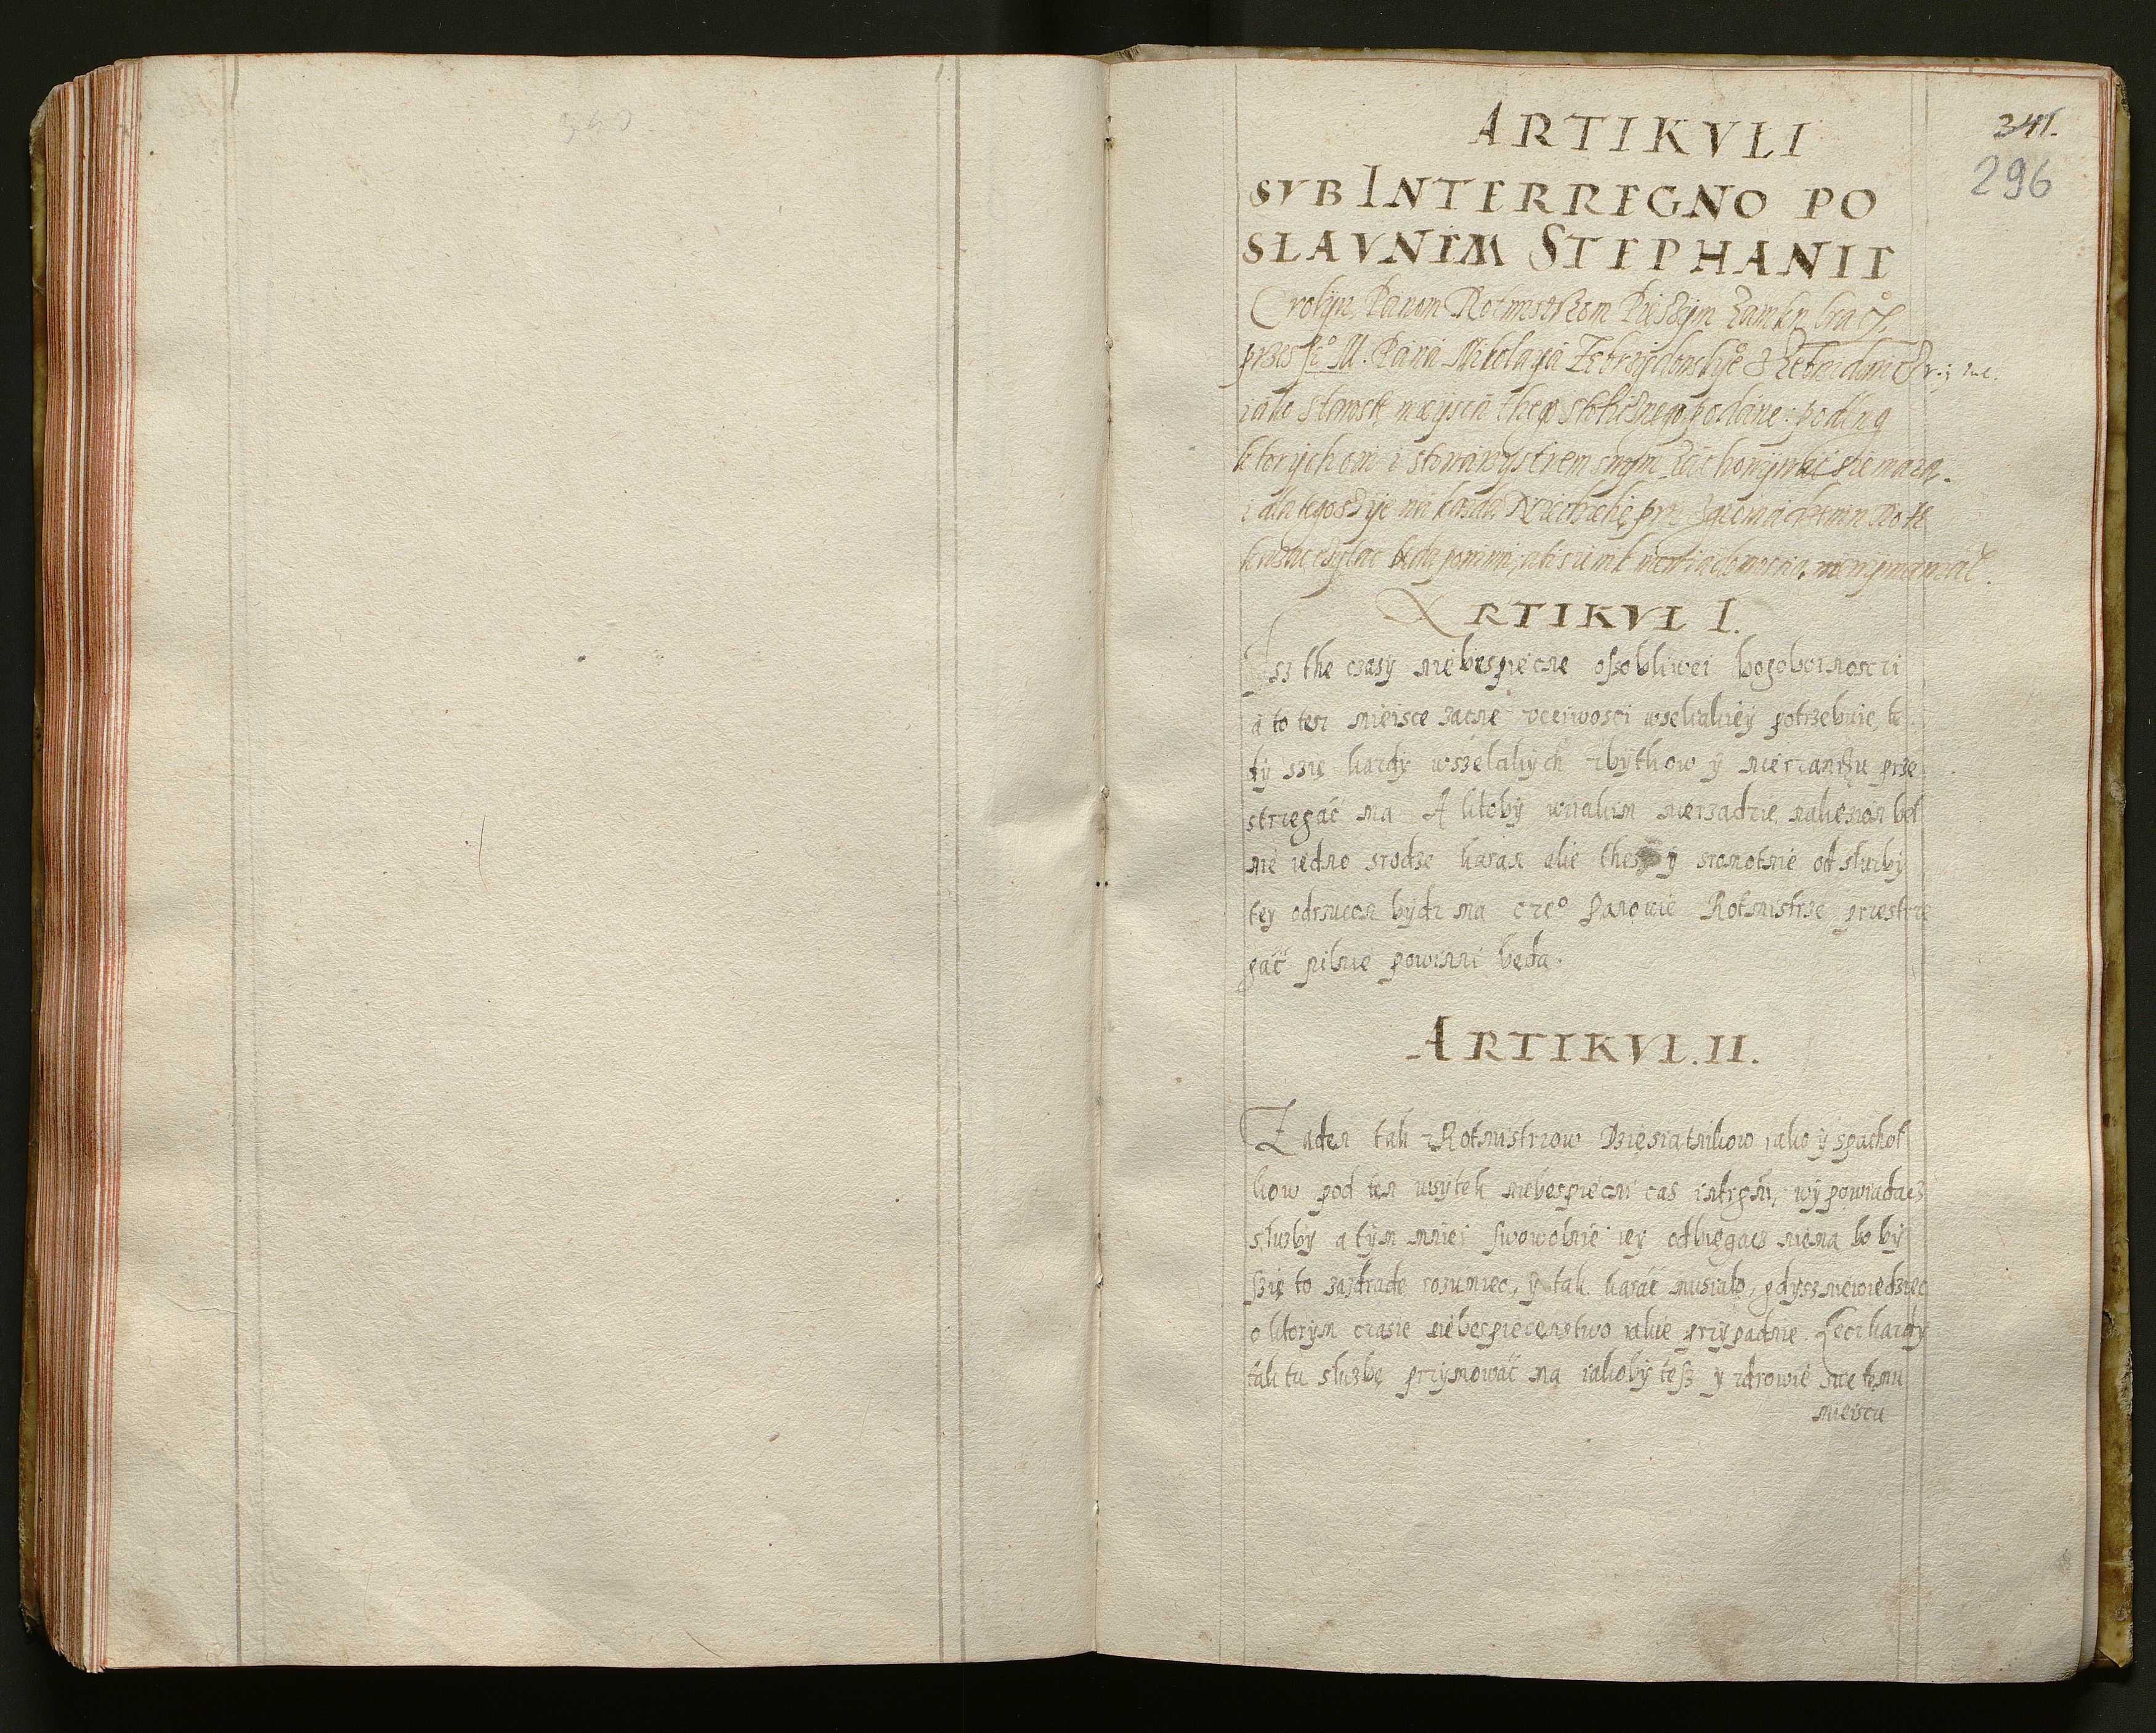 341.
296
ARTIKVLI
SVB INTERREGNO PO
SLAVNEM STEPHANIE
Crolÿm Panom Rotmistrzom Pięszÿm Zamku
przes Je° M. Pana Mikolaÿa Zebrzÿdowskie°
iako starostę mieÿsca thego stołecznego podane: podług
ktorÿch oni i stowarzystwem swÿm zachowÿwać sie maią.
i dla tegosz ie na kazdą Niedzielę prz
ARTIKVL I.
Isz the czasÿ niebespiecne ossobliwei bogoboinosci
a to ten mieisce zacne vcciwosci wselakieÿ potrzebuie, te
dÿ szię kazdÿ wszelakÿch zbÿtkow ÿ nierzandzu prze
strzegać ma A ktobÿ wiakim nierządzie naliezion bel
nie iedno srodze karan alie thes ÿ sromotnie od słuzbÿ
teÿ odrzucon bÿdz ma cze° Panowie Rotmistrze przestrze
gać pilnie powinni będą.
ARTIKVL.II.
Zaden tak z Rotmistrzow Dzięsiatnikow iako ÿ spachoł
kow pod ten wsÿtek niebespiecni cas intrgni, wÿpowiadacz
słuzbÿ a tÿm mniei swowolnie ieÿ odbiegacz niema bo bÿ
szię to zazdradę rozumiec, ÿ tak karać musiało, gdÿsz niewiedziec
o ktorÿm czasie niebespiecenstwo iakie przÿpadnie. Lecz kazdÿ
tak tu słuzbę przÿmowáć ma iakobÿ tesz ÿ zdrowie swe temu
mieiscu